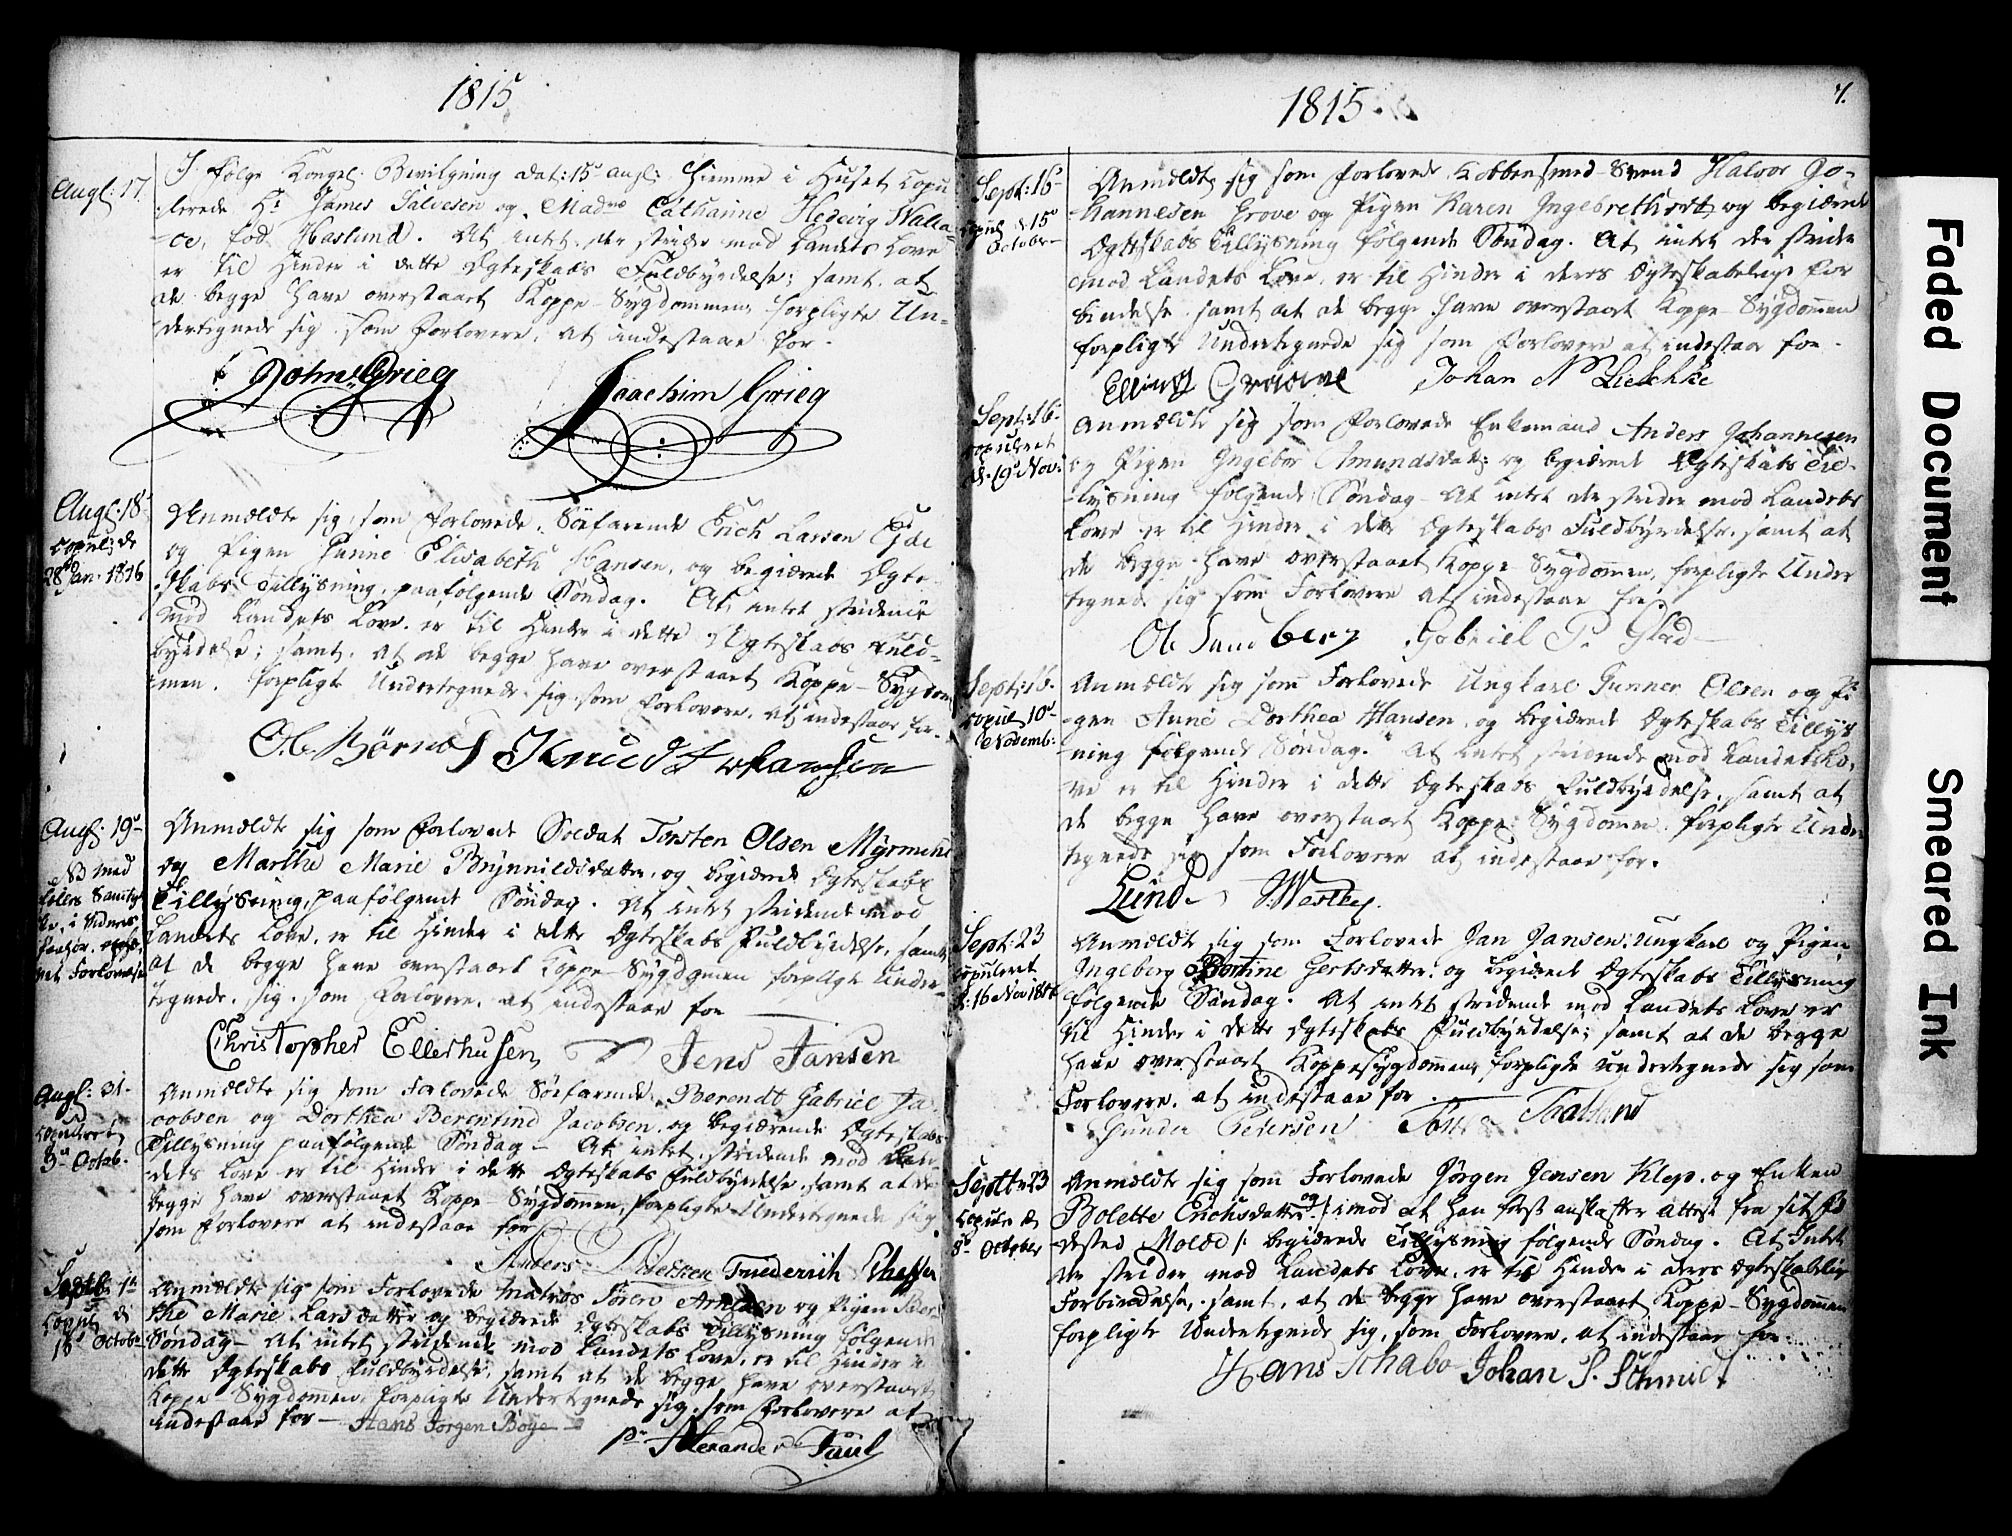 1815
Augl: 17.
I følge Kongel. Bevilgning dat: 15d augl: hiemme i Huset Copu
lerede Hr James Salvesen og Madme Cathrine Hedevig Walla-
ce, fød Haslund. At intet, der strider mod Landets Love
er til Hinder i dette Ægteskabs Fuldbyrdelse; samt at
de begge have overstaaet Koppe-Sygdommen, forpligte Un-
dertegnede sig som Forlovere, at indestaae for.
John Grieg
Joachim Grieg
Augl: 18d
Copul: de
28de Jan: 1816
Anmældte sig, som Forlovede, Søefarende Erich Larsen Eide
og Pigen Elisabeth Hansen, og begiærede Ægte-
skabs Tillysning, paafølgende Søndag. At intet stridende
mod Landets Love, er til Hinder i dette Ægteskabs Fuld-
byrdelse; samt, at de begge have overstaaet Koppe-Sygdom-
men, forpligte Undertegnede sig som Forlovere, at indestaae for.
O. C. Børnes Knud
Augl: 19d
NB med
Samty-
ke, i Viderns
Forlovelse
Anmældte sig som Forlovede Soldat Torsten Olsen
og Marthe Marie Brynnildsdatter, og begiærede Ægteskabs
Tillysning, paafølgende Søndag. At intet stridende mod
Landets Love, er til Hinder i dette Ægteskabs Fuldbyrdelse, samt
at de begge have overstaaet Koppe-Sygdomen forpligte Under-
tegnede, sig, som Forlovere, at indestaae for
Christopher Ellerhusen Jens Jansen
Augl: 31.
Copuleret
3d Octob.
Anmældte sig som Forlovede Søefarende Berendt Gabriel Ja-
cobsen og Dorthea Jacobsen, og begiærende Ægteskabs
Tillysning paafølgende Søndag – At intet, stridende mod Lan-
dets Love er til Hinder i dette Ægteskabs Fuldbyrdelse, samt at de
begge have overstaaet Koppe-Sygdomen, forpligte Undertegnede sig
som Forlovere at indestaae for
Anders Friederich
Septb: 1st
Copul: d
18d October
Anmældte sig som Forlovede Matros Søren og Pigen
Marie Larsdatter og begiærede Ægteskabs Tillysning følgende
Søndag – At intet stridende mod Landets Love, er til Hinder i
dette Ægteskabs Fuldbyrdelse, samt at de begge have overstaaet
Koppe-Sygdomen, forpligte Undertegnede sig, som Forlovere at
indestaae for – Hans Jørgen Bøye
pr Alexander Paul
1815
7.
Sept: 16d
Copul d 15d
October
Anmældte sig som Forlovede Kobbersmed-Svend Halvor Jo-
hannesen Grove og Pigen Karen Ingebrethsdt og begiærede
Ægteskabs Tillysning følgende Søndag. At intet der strider
mod Landets Love, er til Hinder i deres Ægteskabelige For
bindelse samt at de begge have overstaaet Koppe-Sygdomen
forpligte Undertegnede sig som Forlovere at indestaae for.
Elling Johan N
Sept: 16d
copuleret
d. 19d Nov:
Anmældte sig som Forlovede Enkemand Anders Johannesen
og Pigen Ingebor Amundsdatr og begiærede Ægteskabs Til-
lysning følgende Søndag – At intet der strider mod Landets
Love er til Hinder i dette Ægteskabs Fuldbyrdelse, samt at
de begge have overstaaet Koppe-Sygdomen, forpligte Under
tegnede sig som Forlovere at indestaae for
Ole Sandberg Gabriel P. Glad
Sept: 16.
Copul 10d
Novemb:
Anmældte sig som Forlovede Ungkarl Gunner Olsen og Pi
gen Anne Dorthea Hansen, og begiærede Ægteskabs Tillys
ning følgende Søndag. At intet stridende mod Landets Lo-
ve er til Hinder i dette Ægteskabs Fuldbyrdelse, samt at
de begge have overstaaet Koppe-Sygdomen forpligte Under
tegnede sig som Forlovere at indestaae for.
Lund
Sept: 23
Copuleret
d: 16 Nov
Anmældte sig som Forlovede Jan Jansen, Ungkarl og Pigen
Ingeborg Bertine Gertsdatter: og begiærede Ægteskabs Tillysning
følgende Søndag. At intet stridende mod Landets Love er
til Hinder i dette Ægteskabs Fuldbyrdelse; samt at de begge
have overstaaet Koppesygdomen, forpligte undertegnede sig som
Forlovere, at indestaae for.
Gunder Petersen
Septbr 23
Copuler d
8d October
Anmældte sig som Forlovede Jørgen Jensen Klep, og Enken
Bolette Erichsdatter og /: imod at han først anskaffer Attest fra sit Fø
dested Molde :/ begiærede Tillysning følgende Søndag. At Intet
der strider mod Landets Love, er til Hinder i deres Ægteskabelig
Forbindelse, samt, at de begge have overstaaet Koppe-Sygdommen
forpligte Undertegnede sig, som Forlovere, at indestaae for
Hans Schabo Johan S. Schmidt
Faded Document
Smeared Ink